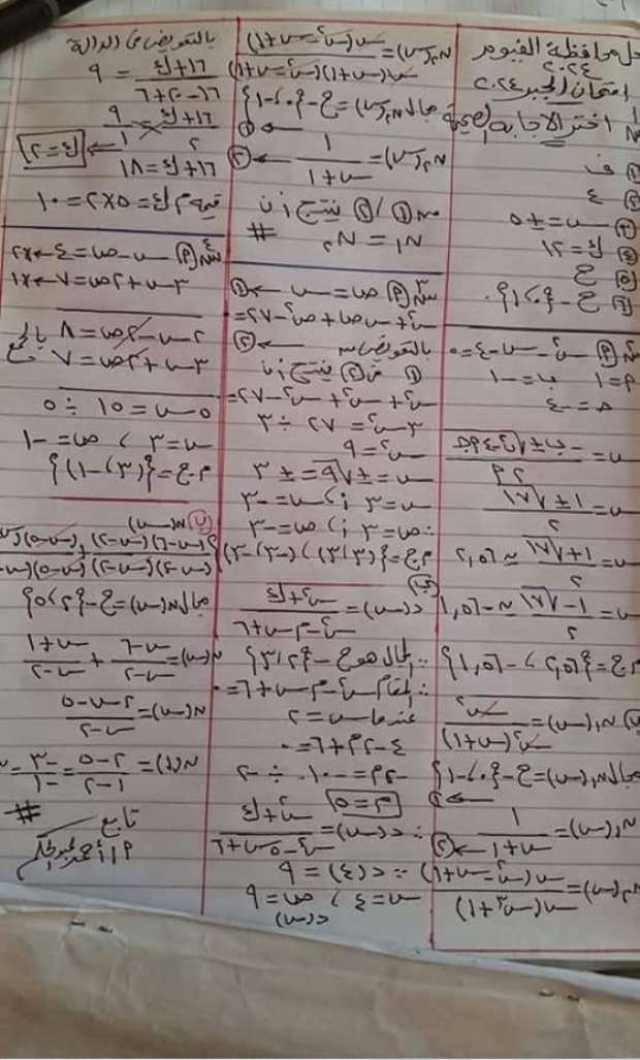 حل محافظة الفيوم
٢٠٢٤
امتحان الجبر ٢٠٢٤
اختر الاجابة الصحيحة
① ف
② ٤
③ س = ± ٥
④ ك = ١٢
⑤ ح
⑥ ح - {٠، ١}
س٢ P س² - س - ٤ = ٠
P = ١ ب = -١
ج = -٤
س = (-ب ± √(ب² - ٤Pج)) / ٢P
س = (١ ± √١٧) / ٢
س = (١ + √١٧) / ٢ ≈ ٢,٥٦
س = (١ - √١٧) / ٢ ≈ -١,٥٦
م.ح = {٢,٥٦، -١,٥٦}
ب) ن١(س) = س² / س²(س+١)
مجال ن١(س) = ح - {٠، -١}
ن١(س) = ١ / (س+١) ← ②
ن٢(س) = س(س² - س + ١) / س(س³+١)
ن٢(س) = س(س² - س + ١) / س(س+١)(س² - س + ١)
مجال ن٢(س) = ح - {٠، -١}
← ①
ن٢(س) = ١ / (س+١) ← ②
من ① / ② ينتج ان
ن١ = ن٢ #
س٣ P ص = س ← ①
س² + س ص + ص² = ٢٧
بالتعويض من ← ②
① فى ② ينتج ان
س² + س² + س² = ٢٧
٣س² = ٢٧ ÷ ٣
س² = ٩
س = ± √٩ = ± ٣
س = ٣ ، س = -٣
∴ ص = ٣ ، ص = -٣
م.ح = {(٣، ٣)، (-٣، -٣)}
ب)
د(س) = (س² + ك) / (س² - م س + ٦)
∵ المجال هو ح - {٢، ٣}
∴ المقام س² - م س + ٦ = ٠
عندما س = ٢
٤ - ٢م + ٦ = ٠
-٢م = -١٠ ÷ -٢
م = ٥
∴ د(س) = (س² + ك) / (س² - ٥س + ٦)
∵ د(٤) = ٩
س = ٤ ، ص = ٩
د(س)
بالتعويض فى الدالة
(١٦ + ك) / (١٦ - ٢٠ + ٦) = ٩
(١٦ + ك) / ٢ = ٩ / ١
١٦ + ك = ١٨ ← ك = ٢
قيمة م ك = ٥ × ٢ = ١٠
س٤ P س - ص = ٤ ← ×٢
٣س + ٢ص = ٧ ← ×١
٢س - ٢ص = ٨ بالجمع
٣س + ٢ص = ٧
٥س = ١٥ ÷ ٥
س = ٣ ، ص = -١
م.ح = {(٣، -١)}
ب) ن(س)
مجال ن(س) = ح - {٢، ٥}
ن(س) = (س - ٦) / (س - ٢) + (س + ١) / (س - ٢)
ن(س) = (٢س - ٥) / (س - ٢)
ن(١) = (٢ - ٥) / (١ - ٢) = -٣ / -١
#
تابع